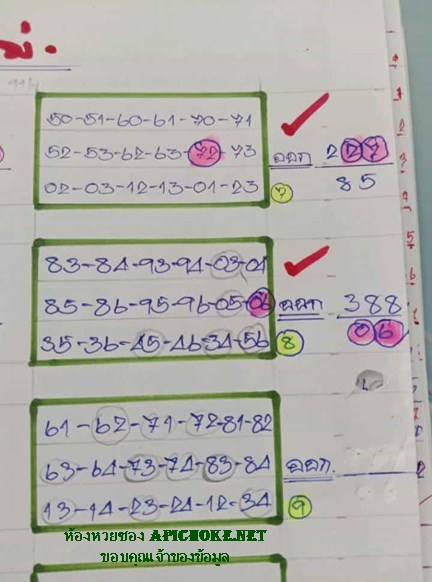 50-51-60-61-70-71
52-53-62-63-72-73 ออก 227
02-03-12-13-01-23 7 85
83-84-93-94-03-04
85-86-95-96-05-06 ออก 388
35-36-45-46-34-56 8 06
61-62-71-72-81-82
63-64-73-74-83-84 ออก.
13-14-23-24-12-34 9
ห้องหวยซอง APICHOKE.NET
ขอบคุณเจ้าของข้อมูล